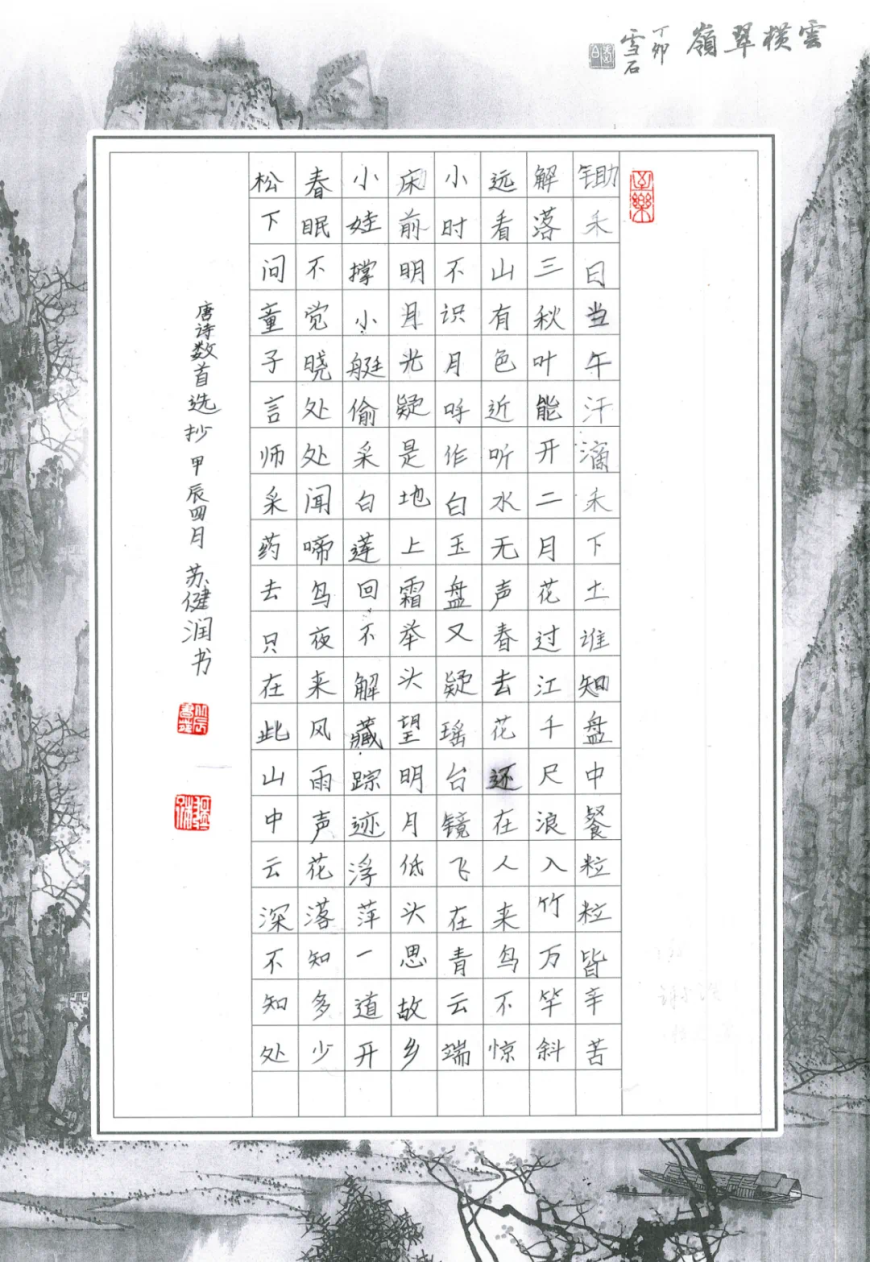 雲横翠嶺
丁卯
雪石
锄禾日当午汗滴禾下土谁知盘中餐粒粒皆辛苦
解落三秋叶能开二月花过江千尺浪入竹万竿斜
远看山有色近听水无声春去花还在人来鸟不惊
小时不识月呼作白玉盘又疑瑶台镜飞在青云端
床前明月光疑是地上霜举头望明月低头思故乡
小娃撑小艇偷采白莲回不解藏踪迹浮萍一道开
春眠不觉晓处处闻啼鸟夜来风雨声花落知多少
松下问童子言师采药去只在此山中云深不知处
唐诗数首选抄甲辰四月苏健润书